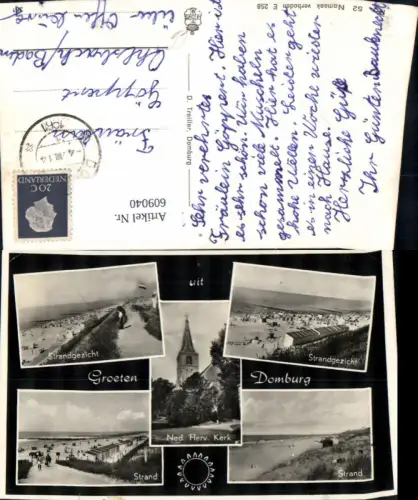 52 Namaak verboden E 258
D. Treiller, Domburg
Sehr verehrtes
Fräulein Göppert. Hier ist
es sehr schön. Wir haben
schon viele Muscheln
gesammelt. Hier hat es
hohe Wellen. Leider geht
es in einer Woche wieder
nach Hause.
Herzliche Grüße
Ihr Günter
Fräulein
Göppert
Ohlsbach/Baden
über Offenburg
NEDERLAND
20 C
Artikel Nr.
609040
uit
Groeten
Domburg
Strandgezicht
Strandgezicht
Ned. Herv. Kerk
Strand
Strand